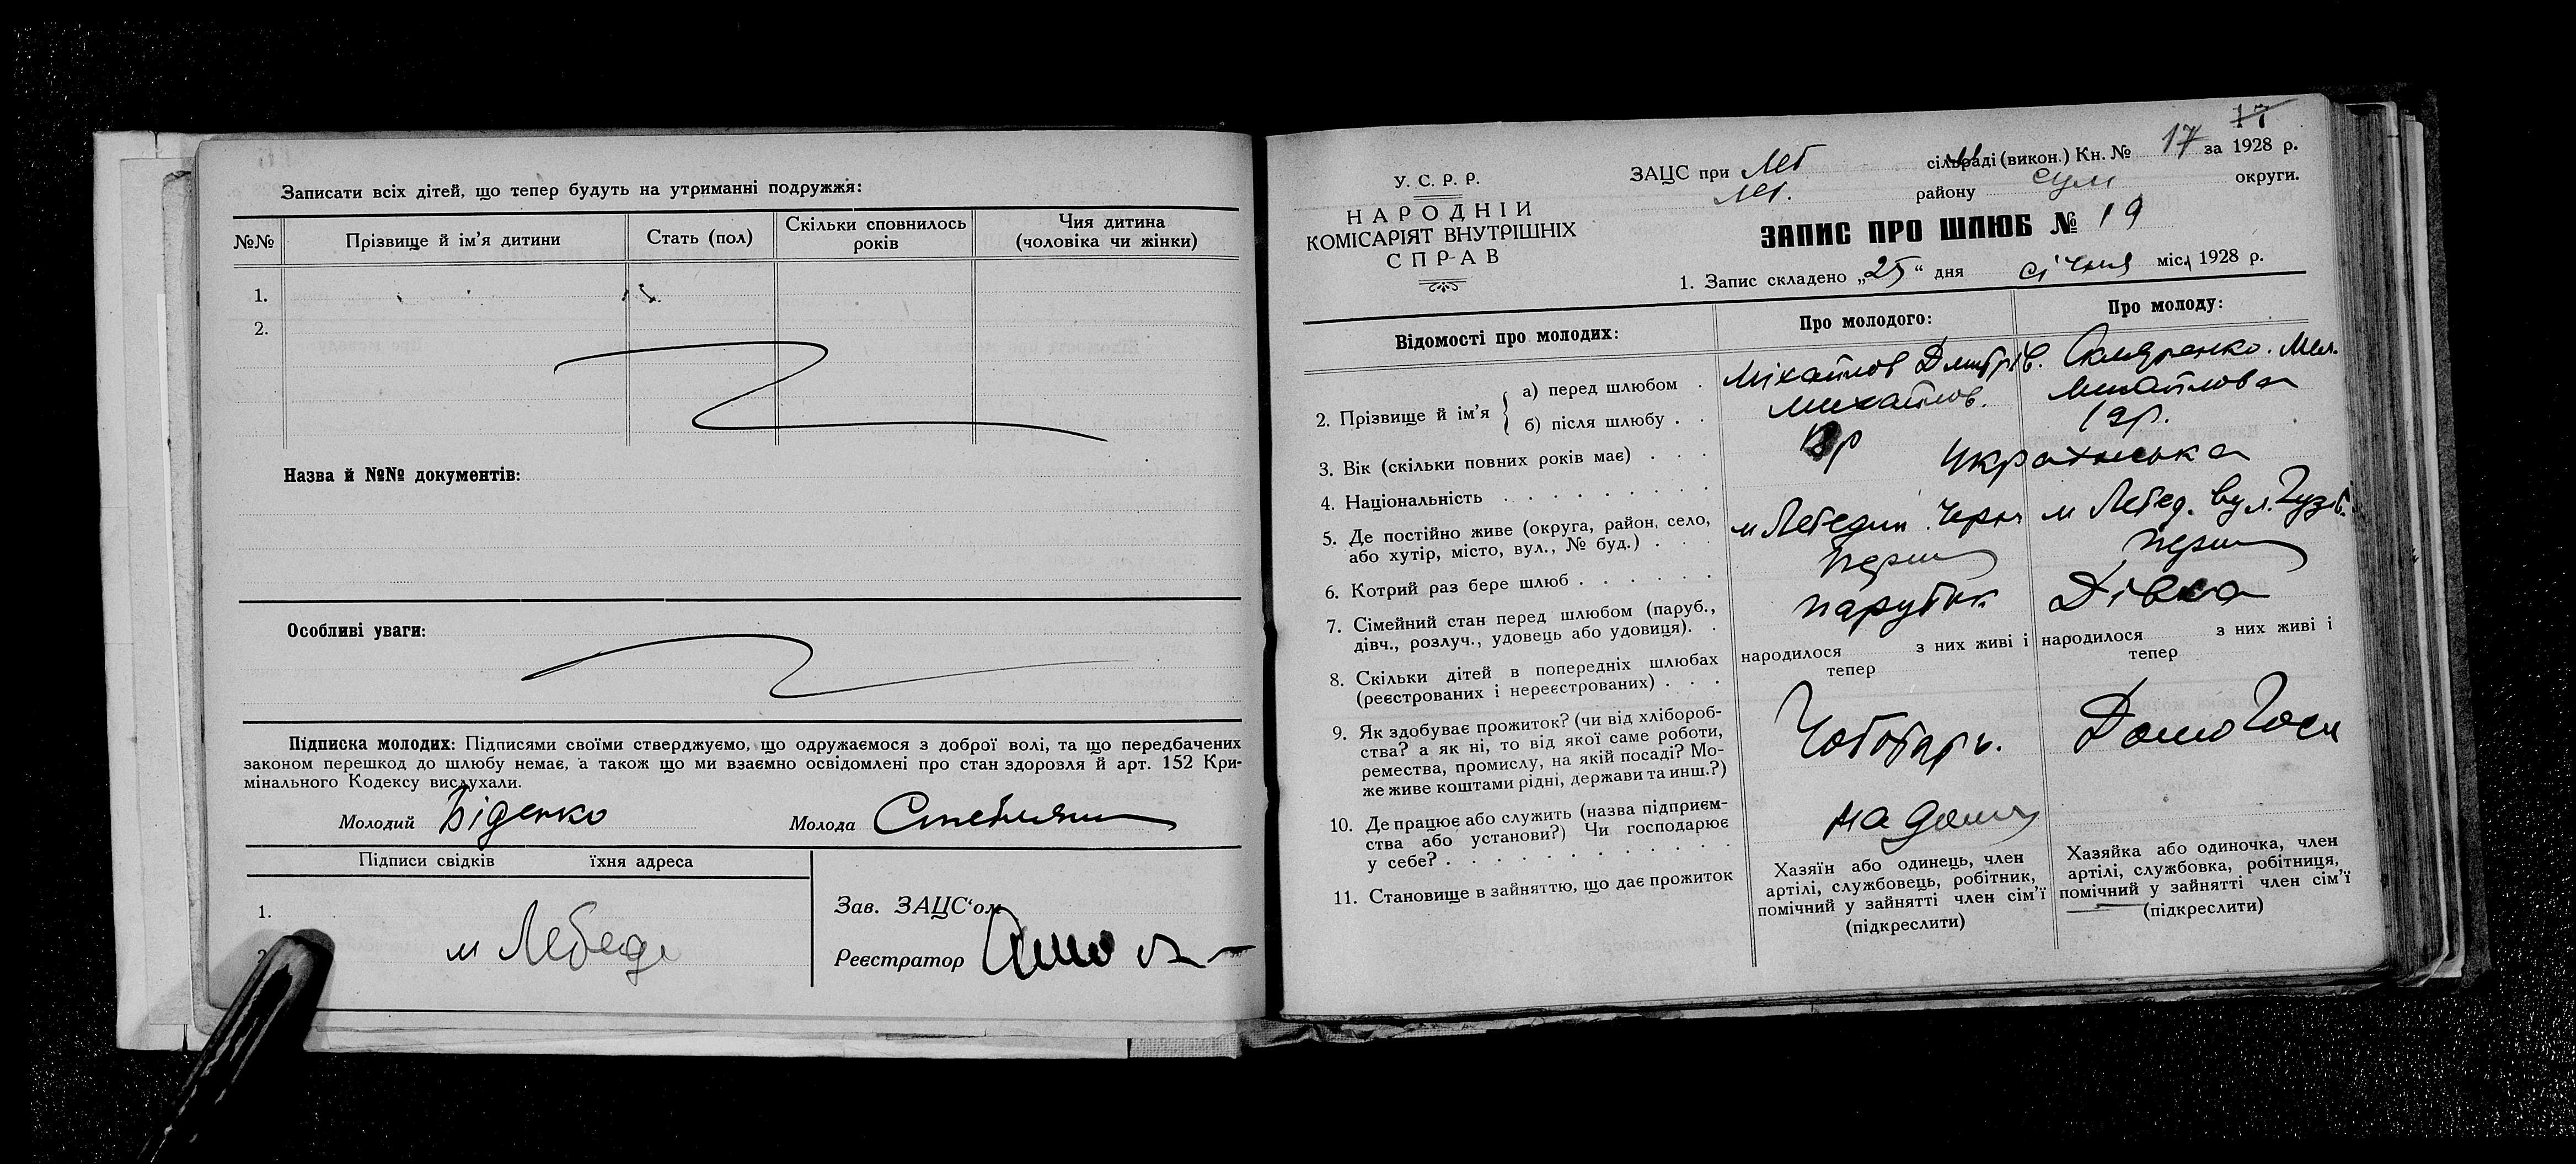 Записати всіх дітей, що тепер будуть на утриманні подружжя:
№№ Прізвище й ім'я дитини Стать (пол) Скільки сповнилось років Чия дитина (чоловіка чи жінки)
1.
2.
Назва й №№ документів:
Особливі уваги:
Підписка молодих: Підписями своїми стверджуємо, що одружаємося з доброї волі, та що передбачених
законом перешкод до шлюбу немає, а також що ми взаємно освідомлені про стан здоровля й арт. 152 Кри-
мінального Кодексу вислухали.
Молодий Біденко Молода
Підписи свідків їхня адреса
1.
2.
м Лебед
Зав. ЗАЦС'ом
Реєстратор
17
У. С. Р. Р.
НАРОДНІЙ
КОМІСАРІЯТ ВНУТРІШНІХ
СПРАВ
ЗАЦС при Леб сільраді (викон.) Кн. № 17 за 1928 р.
Леб. району Сум округи.
ЗАПИС ПРО ШЛЮБ № 19
1. Запис складено „25“ дня січня міс. 1928 р.
Відомості про молодих: Про молодого: Про молоду:
2. Прізвище й ім'я
а) перед шлюбом . Міхайлов Дмитрів. Скляренко. Мел.
б) після шлюбу . . Михайлов. Михайлова
3. Вік (скільки повних років має) . . . 19р.
4. Національність . . . . . . . . . Українська
5. Де постійно живе (округа, район, село,
або хутір, місто, вул., № буд.) . . . м Лебедин м Лебед. вул.
6. Котрий раз бере шлюб . . . . . . перш перш
7. Сімейний стан перед шлюбом (паруб.,
дівч., розлуч., удовець або удовиця). . парубок Дівка
8. Скільки дітей в попередніх шлюбах
(реєстрованих і нереєстрованих) . . .
народилося з них живі і
тепер
народилося з них живі і
тепер
9. Як здобуває прожиток? (чи від хлібороб-
ства? а як ні, то від якої саме роботи,
ремества, промислу, на якій посаді? Мо-
же живе коштами рідні, держави та инш.?)
Чоботарь. Домогосп
10. Де працює або служить (назва підприєм-
ства або установи?) Чи господарює
у себе? . . . . . . . . . . . .
на дому
11. Становище в зайняттю, що дає прожиток
Хазяїн або одинець, член
артілі, службовець, робітник,
помічний у зайнятті член сім'ї
(підкреслити)
Хазяйка або одиночка, член
артілі, службовка, робітниця,
помічний у зайнятті член сім'ї
(підкреслити)